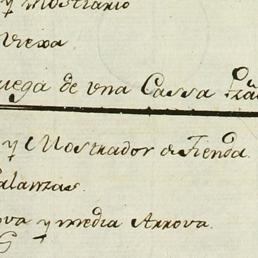 y mostrario
Viexa
uega de una Cassa
y Mostrador de Tienda.
alanzas
ova y media Arrova.